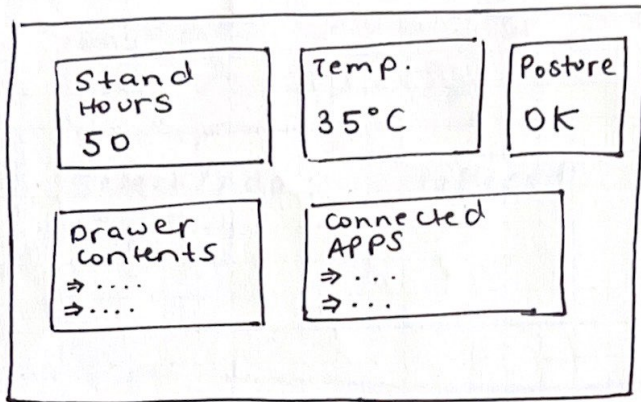 Stand
Hours
50
Temp.
35°C
Posture
OK
Drawer
contents
⇒ ....
⇒ ....
connected
APPS
⇒ ....
⇒ ...